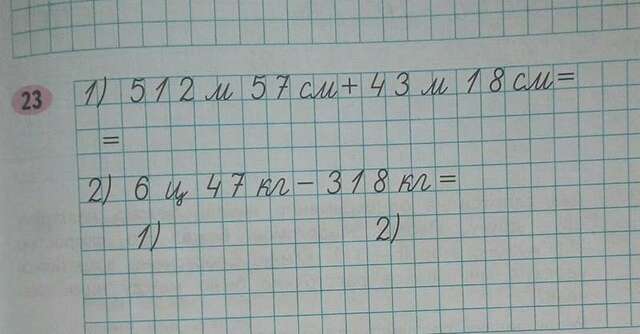 23
1) 512 м 57 см + 43 м 18 см =
=
2) 6 ц 47 кг – 318 кг =
1) 2)